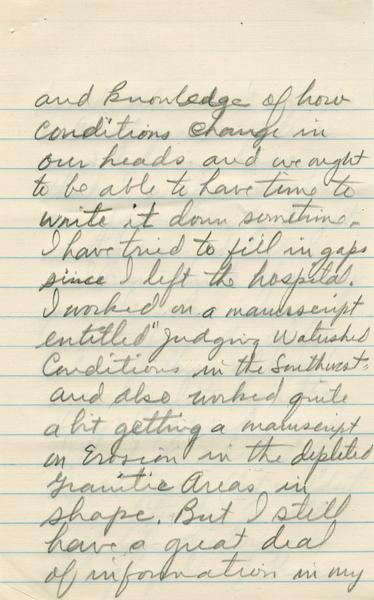 and knowledge of how
conditions change in
our heads and we ought
to be able to have time to
write it down sometime.
I have tried to fill in gaps
since I left the hospital.
I worked on a manuscript
entitled "Judging Watershed
Conditions in the Southwest"
and also worked quite
a bit getting a manuscript
on Erosion in the depleted
Granitic Areas in
shape. But I still
have a great deal
of information in my